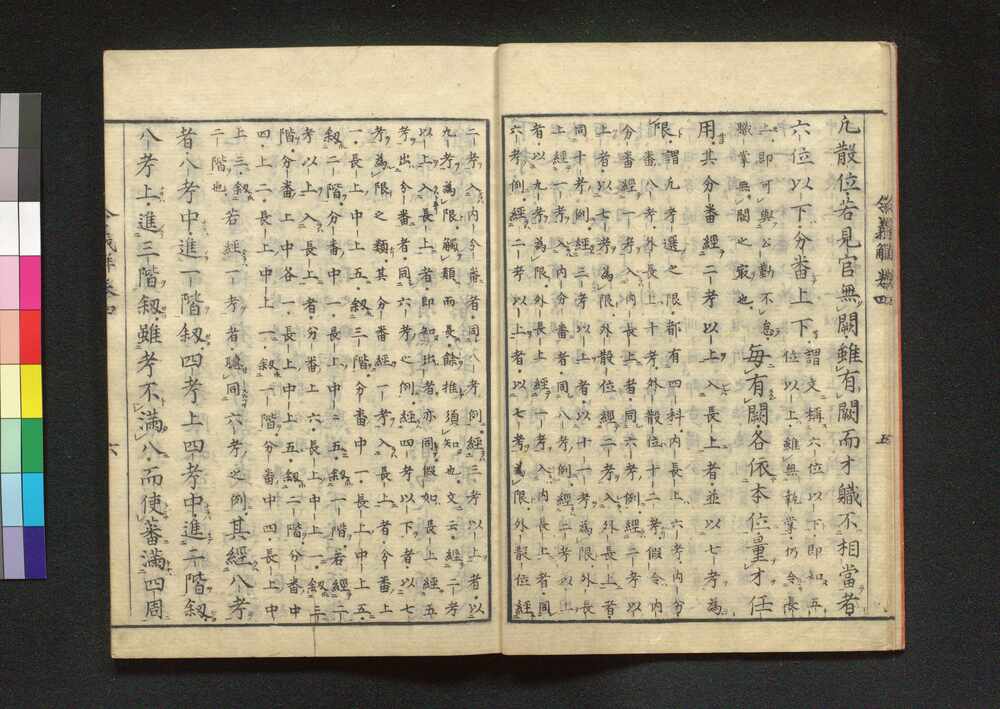 令義解巻四
五
凡散位若見官無闕雖有闕而才軄不相當者
六位以下分番上下
謂文稱六位以下即知五
位以上雖無執掌仍令長
上即可與公勤不怠
職掌無闕之最也
毎有闕各依本位量才任
用其分番經二考以上入長上者並以七考為
限
謂凡考選之限都有四科内長上六考内分
番八考外長上十考外散位十二考假令内
分番經一考入内長上者同六考例經二考以
上者以七考為限外散位經二考入外長上者
同十考例經三考以上者以十一考為限外長
上經一考入内分番者同八考例經二考以上
者以九考為限外長上經一考入内長上者同
六考例經二考以上者以七考為限外散位經
二考入内分番者同八考例經三考以上者以
九考為限觸類而長餘推須知也文云經二考
以上入長上者即知出者亦同假如長上經五
考出分番者同六考之例經四考以下者以七
考為限之類其分番經一考入長上者分番上
一長上中上五叙三階分番中一長上中上五
叙二階分番中一長上中二五叙一階若經二
考以上入長上者分番上六長上中上一叙三
階分番上中各一長上中上五叙二階分番中
四上二長上中上一叙一階分番中四長上中
上三叙
一階也
若經一考者聴同六考之例其經八考
者八考中進一階叙四考上四考中進二階叙
八考上進三階叙雖考不滿八而使蕃滿四周
令義解巻四
六